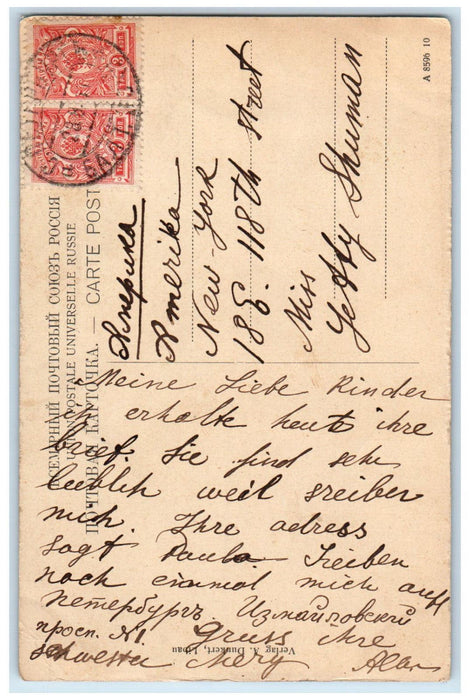 A 8596 10
ВСЕМІРНЫЙ ПОЧТОВЫЙ СОЮЗЪ РОССІЯ
UNION POSTALE UNIVERSELLE RUSSIE
ПОЧТОВАЯ КАРТОЧКА. — CARTE POSTALE
Америка
Amerika
New-York
18 E. 118th street
Miss
Shuman
Meine Liebe Kinder
erhalte heut ihre
brief. Sie sind sehr
lieblich weil sreiben
mich. Ihre adress
sagt Paula Sreiben
noch einmal mich auff
Петербургъ Измайловский
просп. №1 Gruss ihre
schwester Mery
Verlag A. Dunkert, Libau